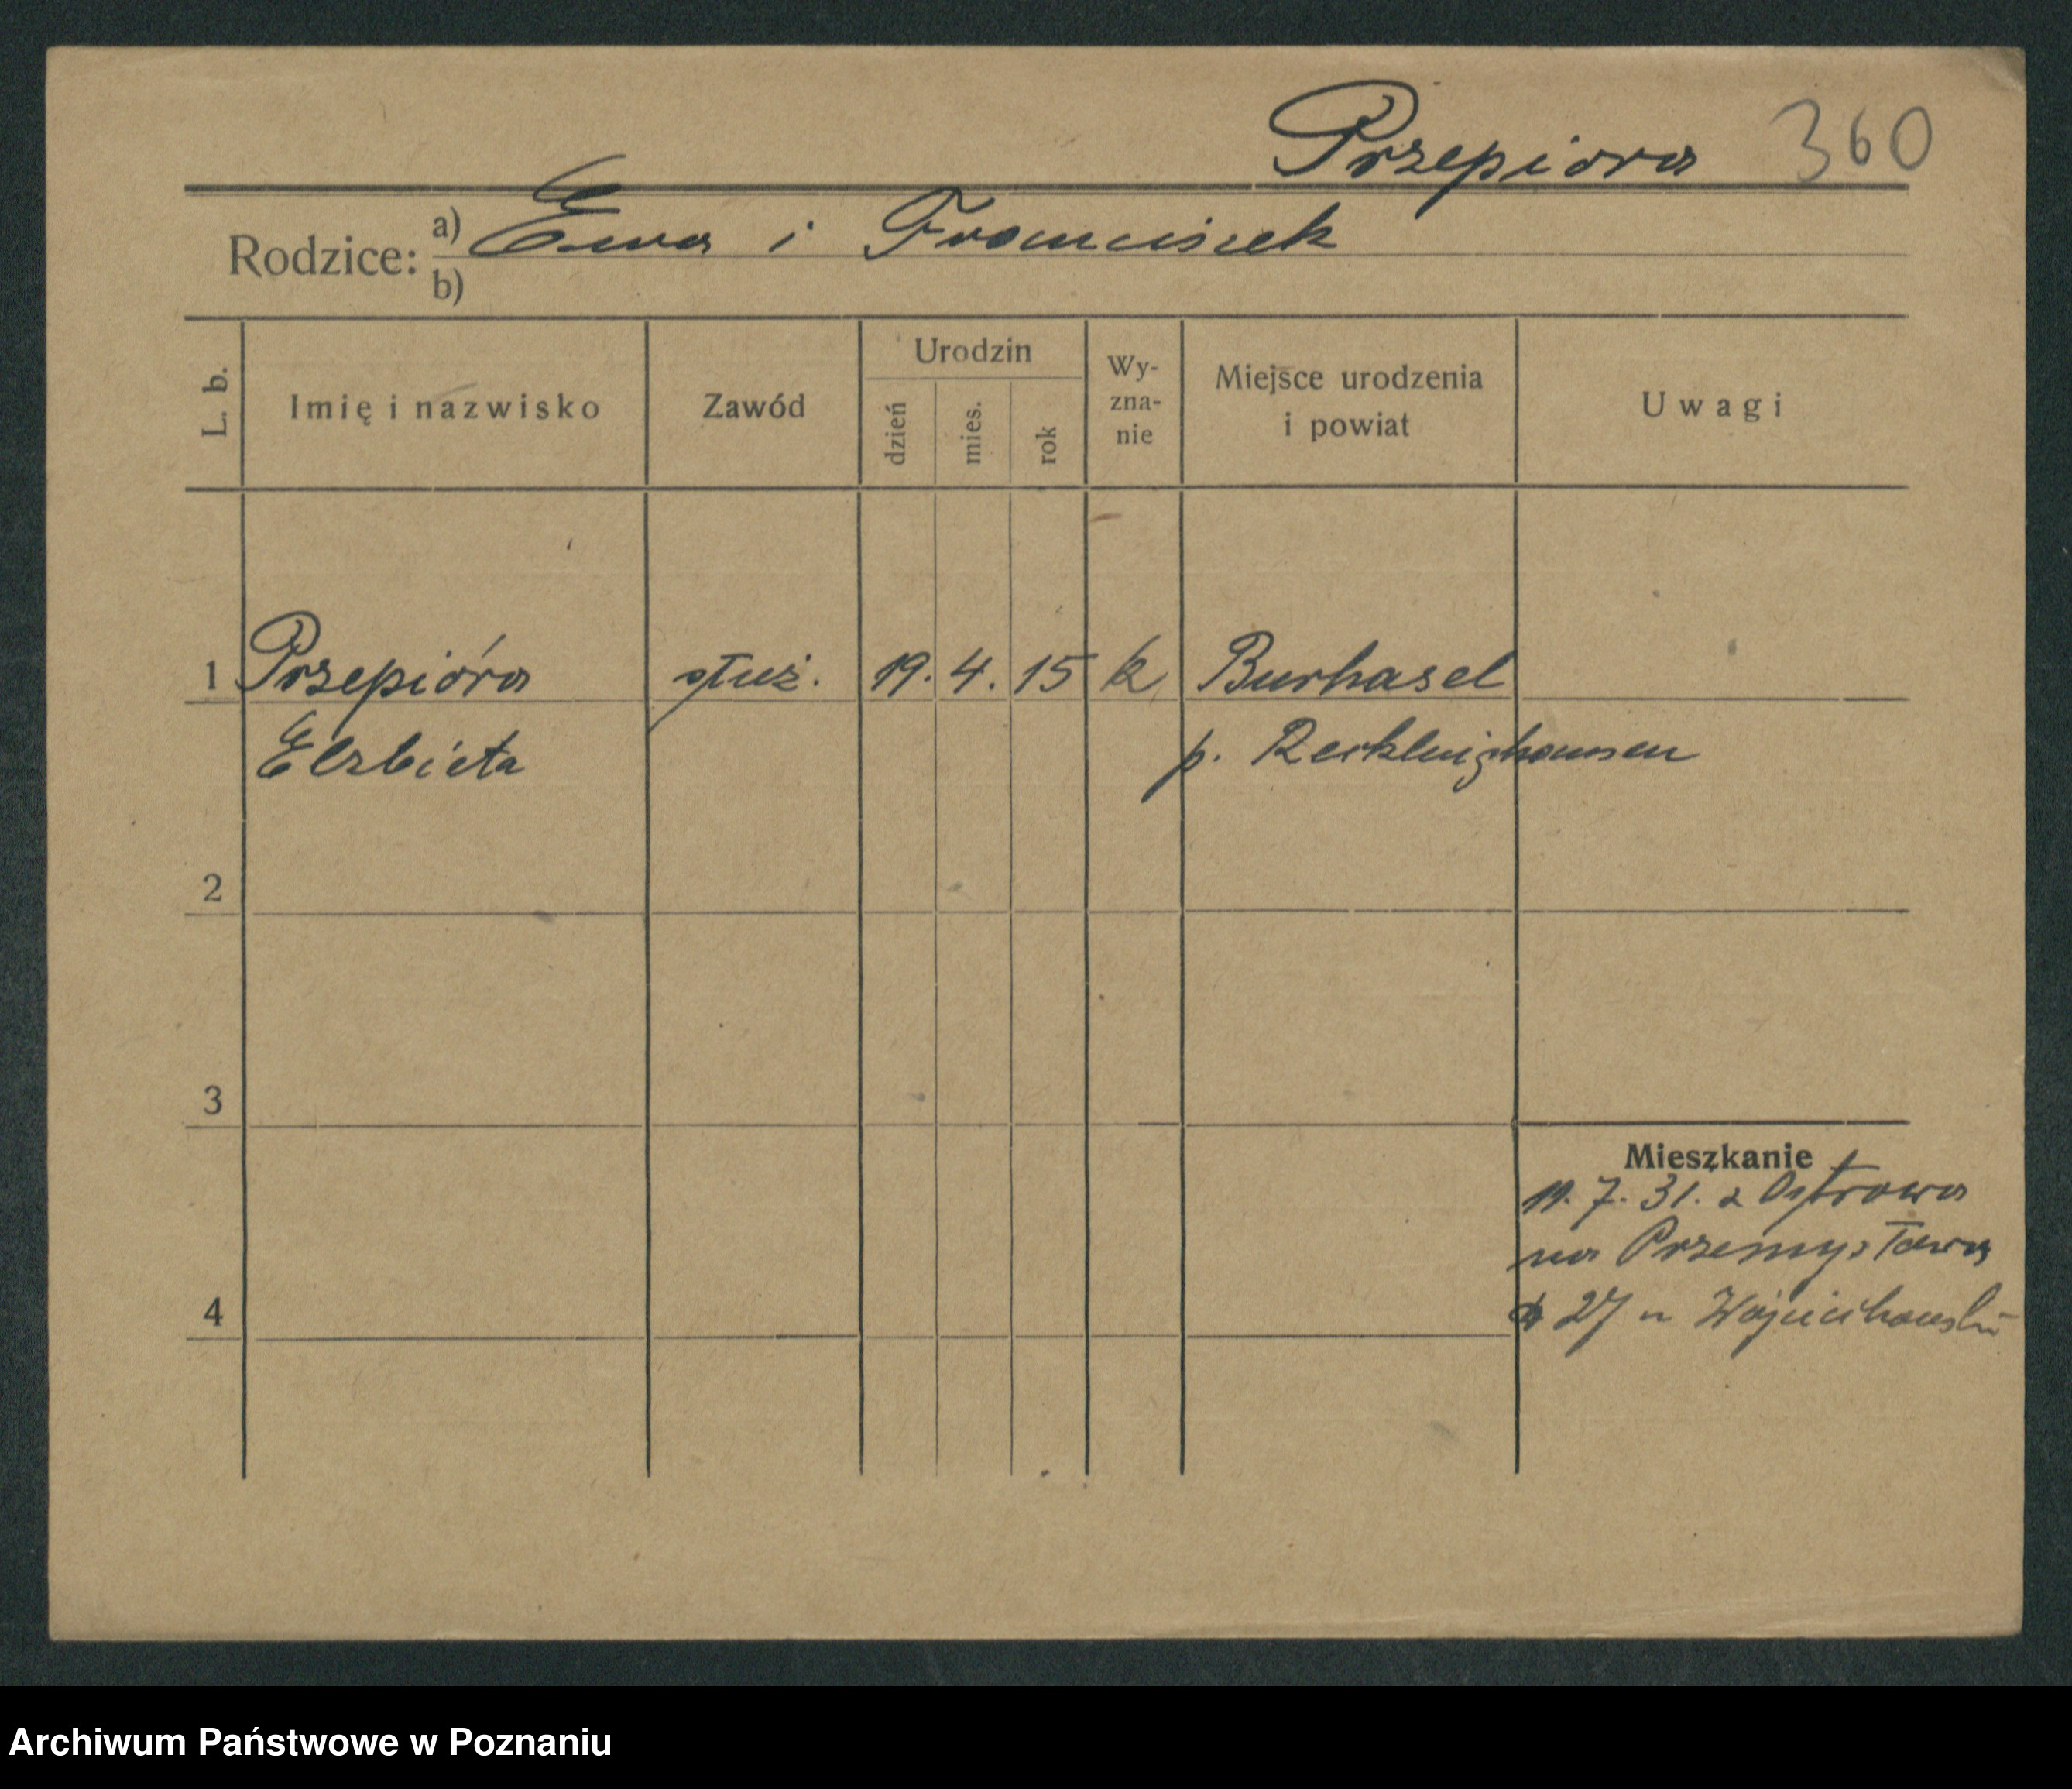 Przepiora 360
Rodzice: a) Ewa i Franciszek
b)
L. b. Imię i nazwisko Zawód Urodzin dzień mies. rok Wy-zna-nie Miejsce urodzenia i powiat Uwagi
1 Przepióra służ. 19. 4. 15 k Burhasel
Elzbieta p. Recklinghausen
2
3
Mieszkanie
19. 7. 31. z Ostrowa
na Przemysława
4 27 u
Archiwum Państwowe w Poznaniu